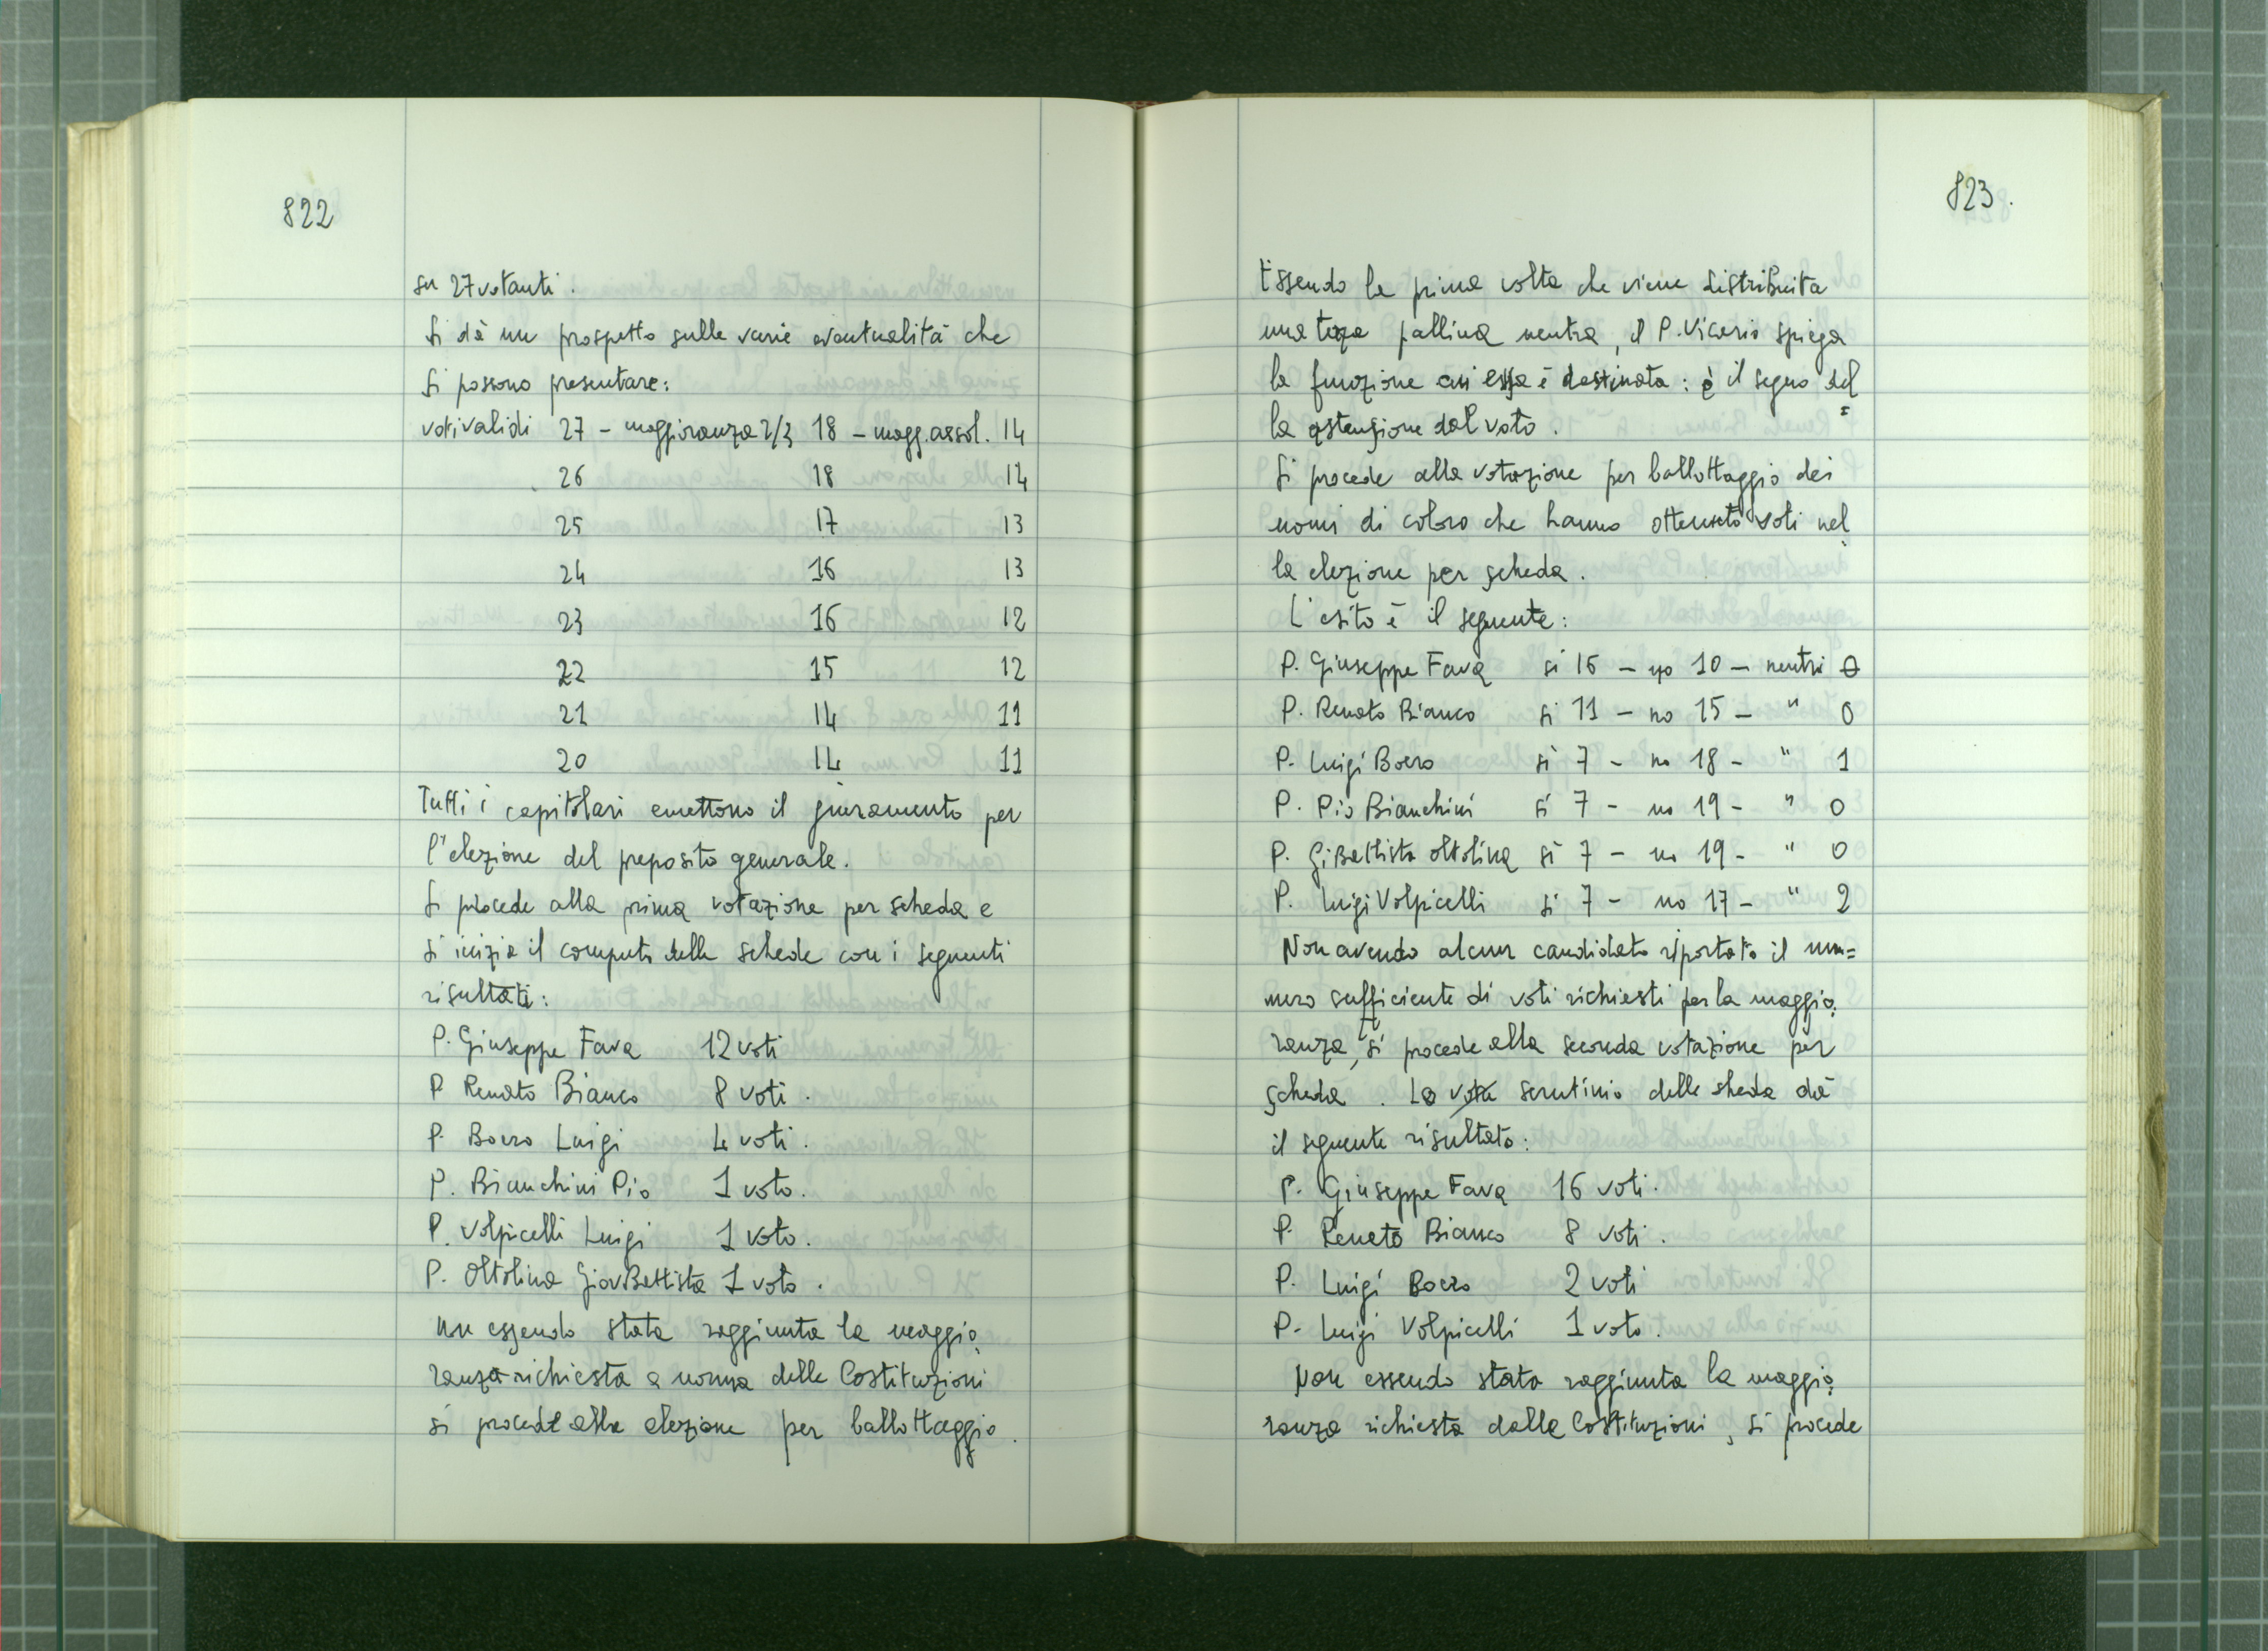 822
su 27 votanti.
Si dà un prospetto sulle varie eventualità che
si possono presentare:
voti validi 27 - maggioranza 2/3 18 - magg. assol. 14
26 18 14
25 17 13
24 16 13
23 16 12
22 15 12
21 14 11
20 14 11
Tutti i capitolari emettono il giuramento per
l'elezione del preposito generale.
Si procede alla prima votazione per scheda e
si inizia il computo delle schede con i seguenti
risultati:
P. Giuseppe Fava 12 voti
P Renato Bianco 8 voti.
P. Boero Luigi 4 voti.
P. Bianchini Pio 1 voto.
P. Volpicelli Luigi 1 voto.
P. Oltolina Giov Battista 1 voto.
Non essendo stata raggiunta la maggio
ranza richiesta a norma delle Costituzioni
si procede alla elezione per ballottaggio.
823.
Essendo la prima volta che viene distribuita
una terza pallina neutra, il P. Vicario spiega
la funzione cui essa è destinata: è il segno del=
la astensione dal voto.
Si procede alla votazione per ballottaggio dei
nomi di coloro che hanno ottenuto voti nel
la elezione per scheda.
L'esito è il seguente:
P. Giuseppe Fava si 16 - no 10 - neutri 0
P. Renato Bianco si 11 - no 15 - " 0
P. Luigi Boero si 7 - no 18 - " 1
P. Pio Bianchini si 7 - no 19 - " 0
P. G. Battista Oltolina si 7 - no 19 - " 0
P. Luigi Volpicelli si 7 - no 17 - " 2
Non avendo alcun candidato riportato il num=
mero sufficiente di voti richiesti per la maggio
ranza, si procede alla seconda votazione per
scheda. Lo scrutinio delle sheda dà
il seguente risultato:
P. Giuseppe Fava 16 voti.
P. Renato Bianco 8 voti.
P. Luigi Boero 2 voti
P. Luigi Volpicelli 1 voto.
Non essendo stata raggiunta la maggio
ranza richiesta dalle Costituzioni, si procede